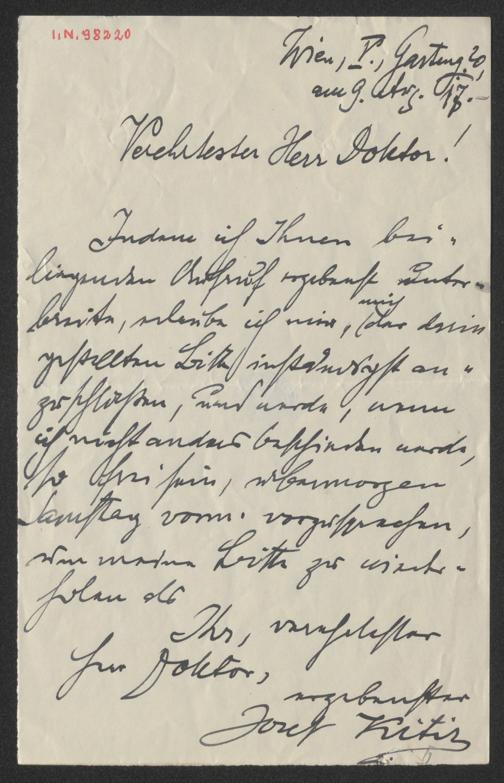 I.N. 98220
Wien, I., Garteng. 20,
am 9. Aug. 17.
Verehrtester Herr Doktor!
Indem ich Ihnen bei-
liegenden Aufruf ergebenst unter-
breite, erlaube ich mir, mich der darin
gestellten Bitte inständigst an-
zuschließen, und werde, wenn
ich nicht anders beschieden werde,
so frei sein, übermorgen
Samstag vorm. vorzusprechen,
um meine Bitte zu wieder-
holen als
Ihr, verehrtester
Herr Doktor,
ergebenster
Josef Kitir